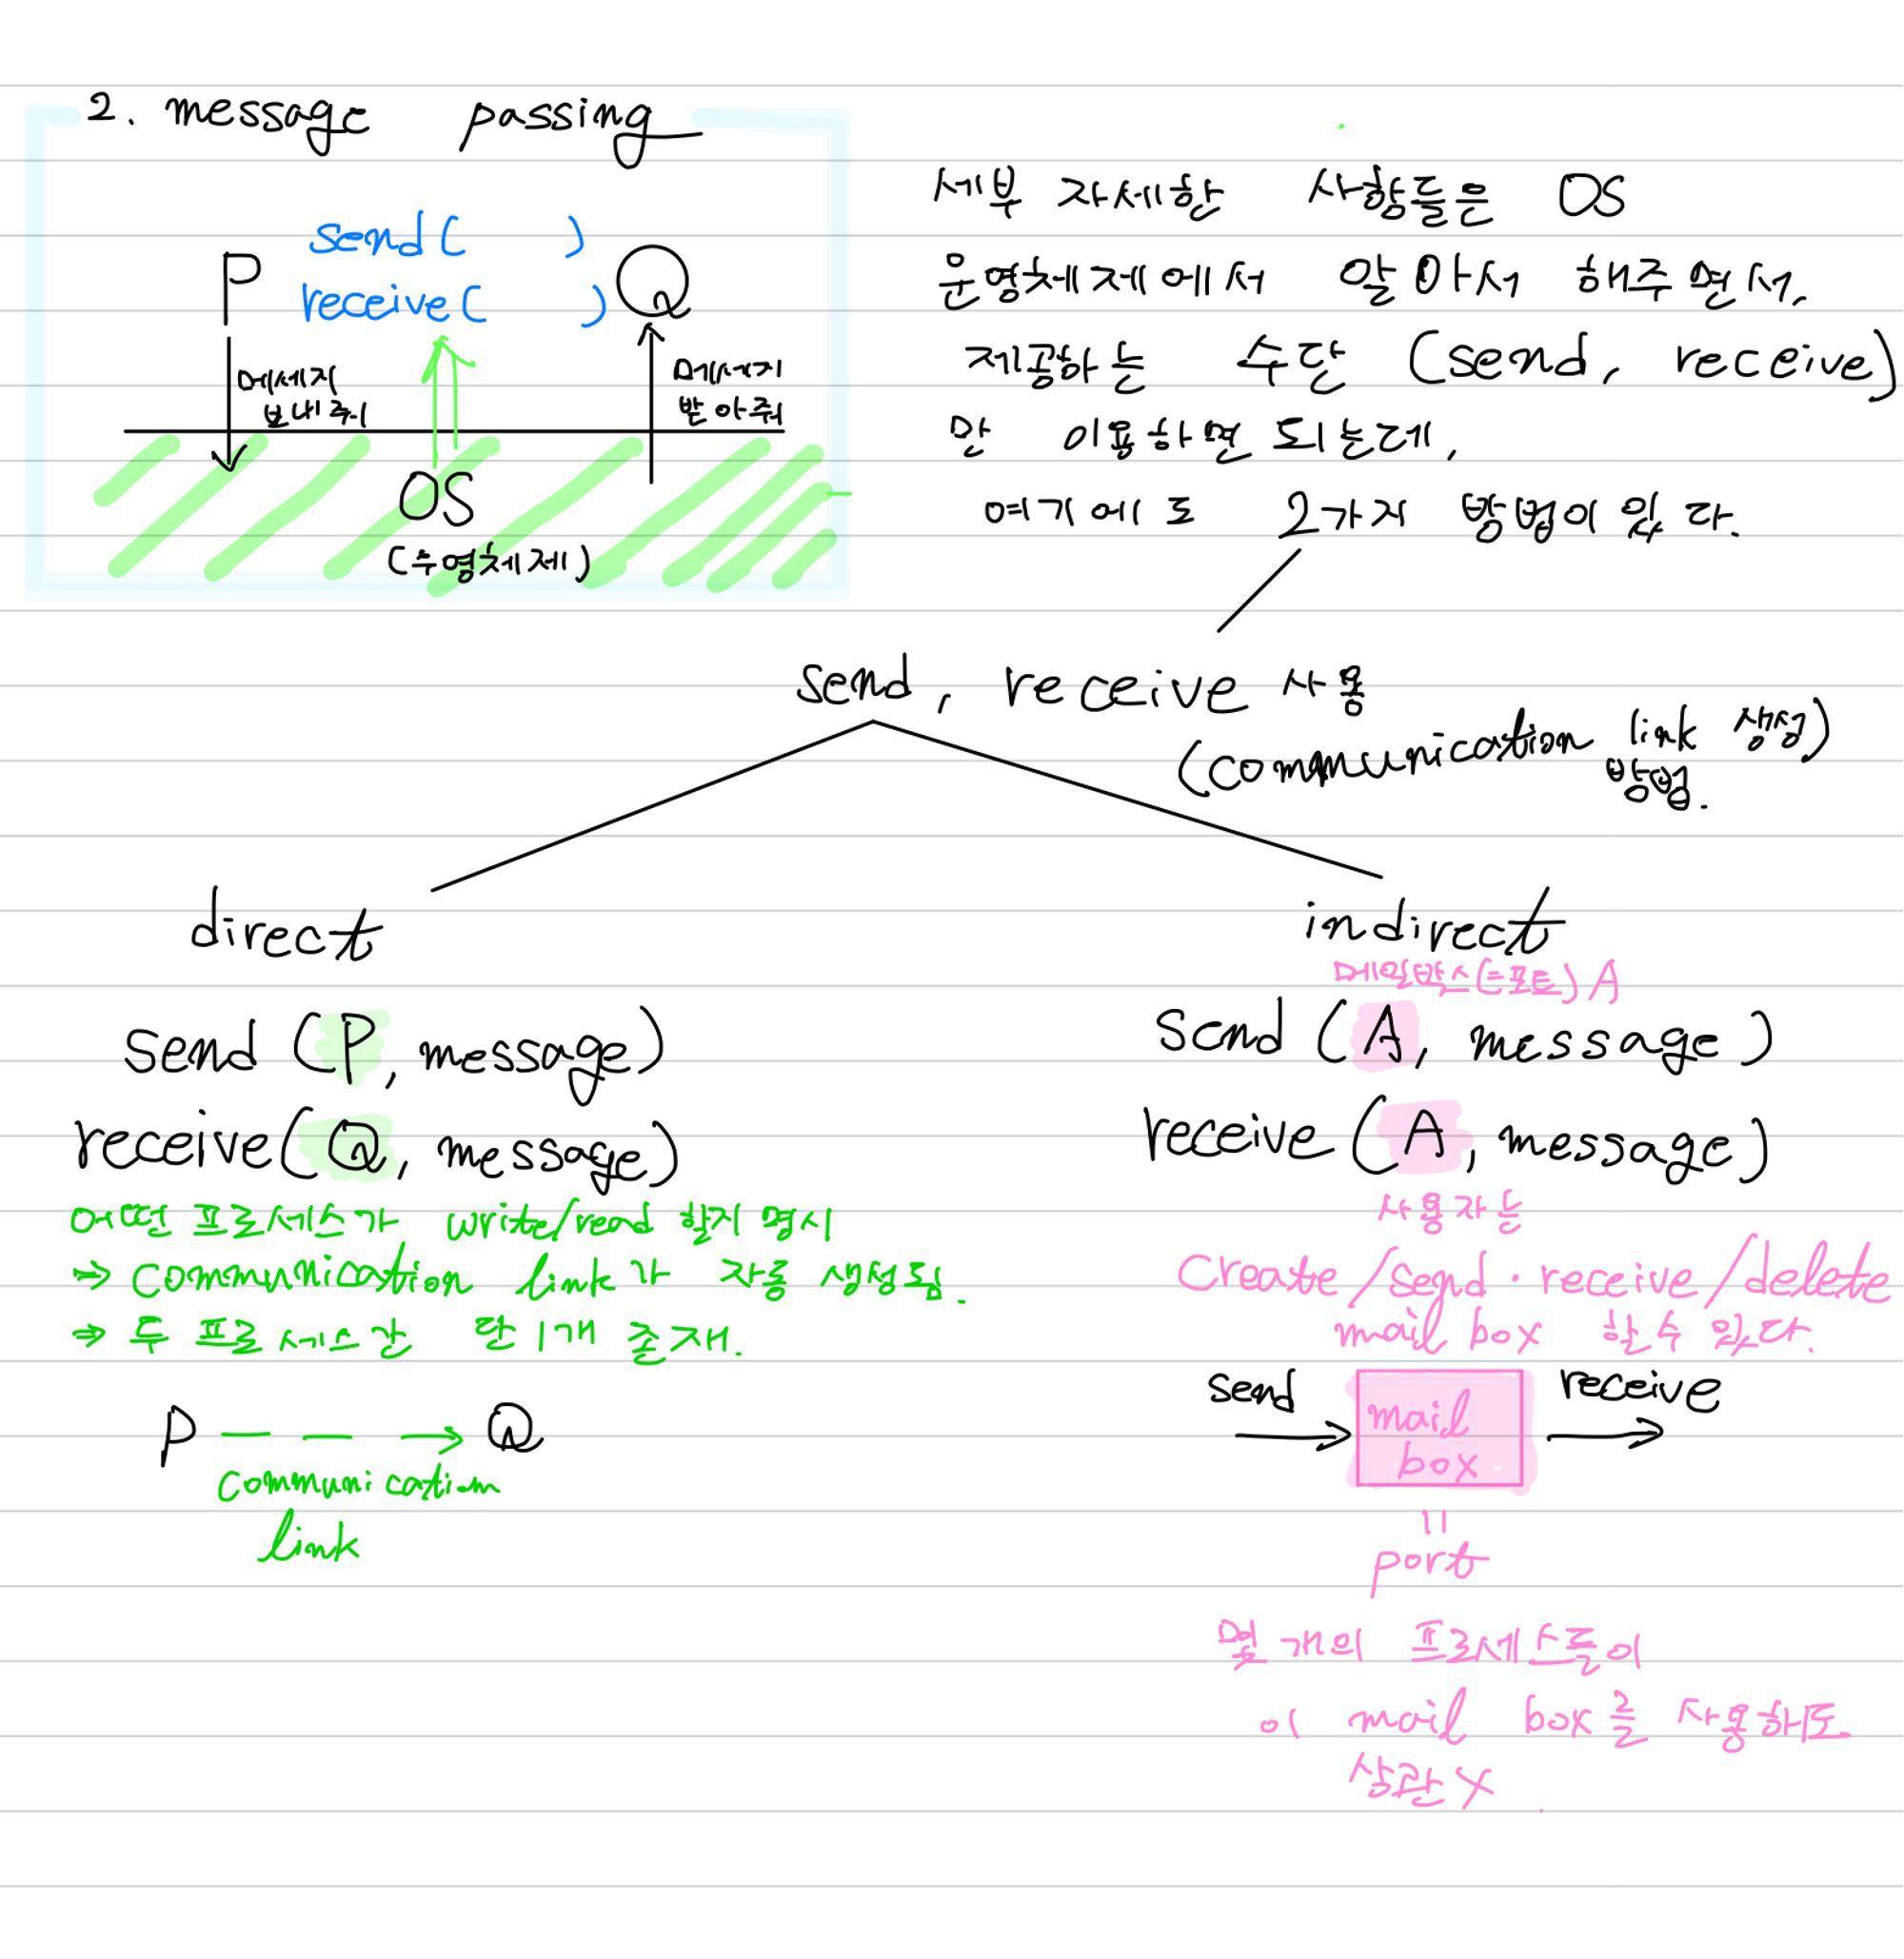 2. message passing
send( )
P Q
receive( )
메세지
보내줘
메세지
받아줘
OS
(우영체제)
세부 자세한 사항들은 OS
운영체제에서 알아서 해주면서,
제공하는 수단 (send, receive)
만 이용하면 되는데,
여기에도 2가지 방법이 있다.
send, receive 사용
(communication link 생성)
방법.
direct
send (P, message)
receive(Q, message)
어떤 프로세스가 write/read 할지 명시
⇒ communication link가 자동 생성됨.
⇒ 두 프로세스간 단 1개 존재.
P Q
communication
link
indirect
메일박스(=포트) A
send (A, message)
receive (A, message)
사용자는
create/send·receive/delete
mail box 할 수 있다.
send receive
mail
box
=
port
몇 개의 프로세스들이
이 mail box를 사용해도
상관 X